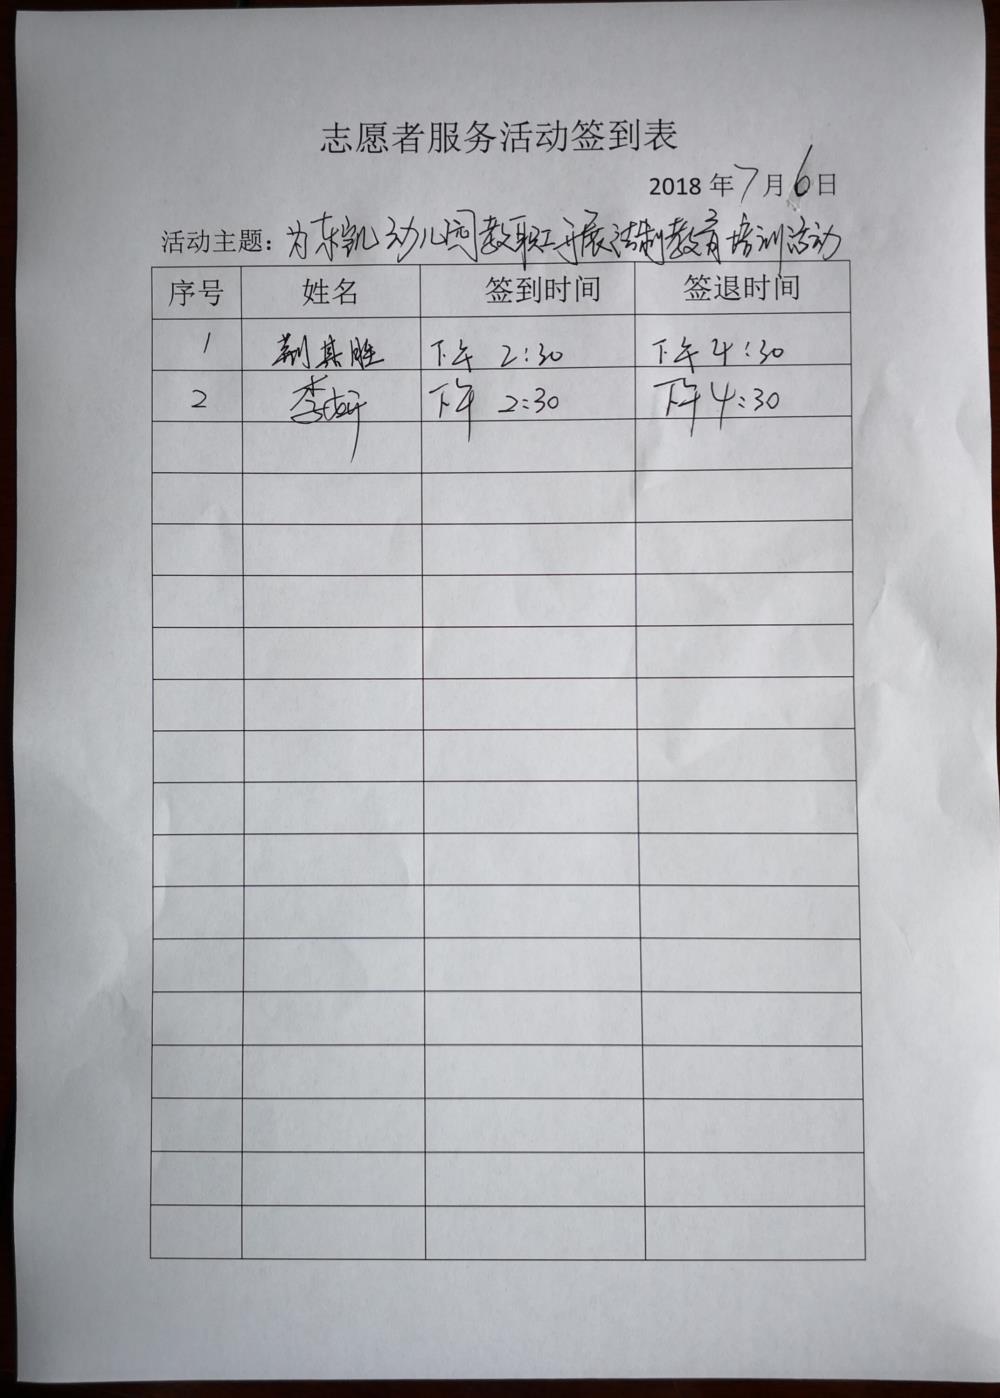 志愿者服务活动签到表
2018 年 7 月 6 日
活动主题：为东凯幼儿园教职工开展法制教育培训活动
序号 姓名 签到时间 签退时间
1 荆其胜 下午 2:30 下午 4:30
2 李 下午 2:30 下午 4:30